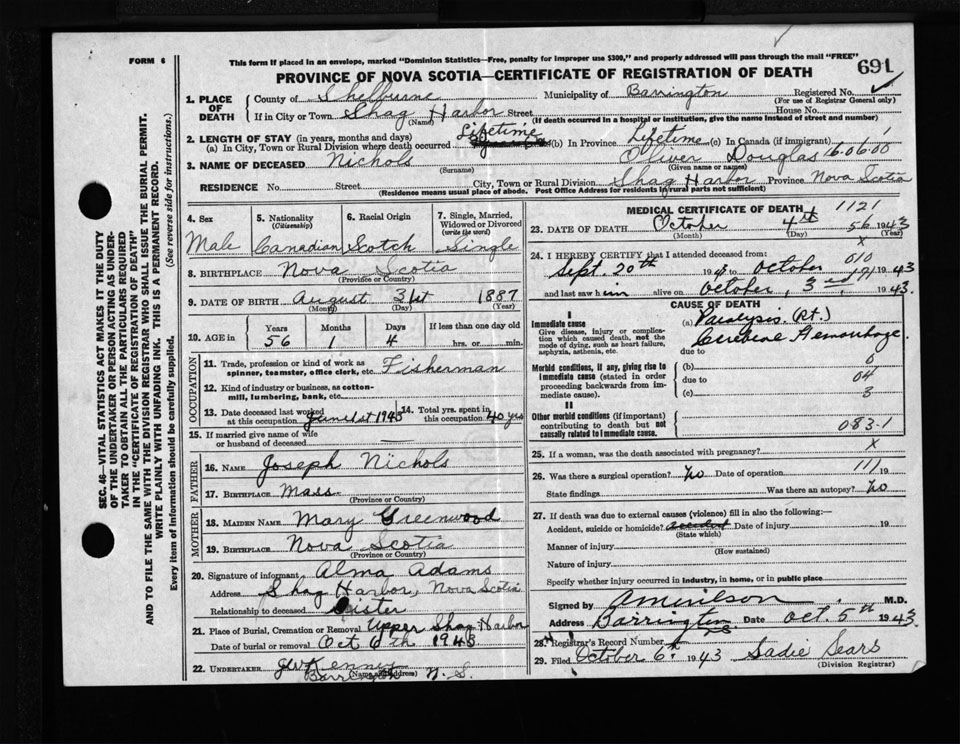 FORM 6
This form if placed in an envelope, marked "Dominion Statistics—Free, penalty for improper use $300," and properly addressed will pass through the mail "FREE"
PROVINCE OF NOVA SCOTIA—CERTIFICATE OF REGISTRATION OF DEATH
691
1. PLACE OF DEATH
County of Shelburne Municipality of Barrington Registered No.
(For use of Registrar General only)
If in City or Town Shag Harbor Street House No.
(Name) (If death occurred in a hospital or institution, give the name instead of street and number)
2. LENGTH OF STAY (in years, months and days)
(a) In City, Town or Rural Division where death occurred Lifetime (b) In Province Lifetime (c) In Canada (if immigrant)
3. NAME OF DECEASED Nichols Oliver Douglas 16-06-00
(Surname) (Given name or names)
RESIDENCE No. Street City, Town or Rural Division Shag Harbor Province Nova Scotia
(Residence means usual place of abode. Post Office Address for residents in rural parts not sufficient)
SEC. 46—VITAL STATISTICS ACT MAKES IT THE DUTY
OF THE UNDERTAKER OR PERSON ACTING AS UNDER-
TAKER TO OBTAIN ALL THE PARTICULARS REQUIRED
IN THE "CERTIFICATE OF REGISTRATION OF DEATH"
AND TO FILE THE SAME WITH THE DIVISION REGISTRAR WHO SHALL ISSUE THE BURIAL PERMIT.
WRITE PLAINLY WITH UNFADING INK. THIS IS A PERMANENT RECORD.
Every item of Information should be carefully supplied. (See reverse side for instructions.)
4. Sex
Male
5. Nationality (Citizenship)
Canadian
6. Racial Origin
Scotch
7. Single, Married, Widowed or Divorced (write the word)
Single
8. BIRTHPLACE Nova Scotia
(Province or Country)
9. DATE OF BIRTH August 31st 1887
(Month) (Day) (Year)
10. AGE in Years Months Days If less than one day old
56 1 4 hrs. or min.
OCCUPATION
11. Trade, profession or kind of work as spinner, teamster, office clerk, etc. Fisherman
12. Kind of industry or business, as cotton-mill, lumbering, bank, etc.
13. Date deceased last worked at this occupation June 1st 1943
14. Total yrs. spent in this occupation 40 yrs
15. If married give name of wife or husband of deceased
FATHER
16. NAME Joseph Nichols
17. BIRTHPLACE Mass
(Province or Country)
MOTHER
18. MAIDEN NAME Mary Greenwood
19. BIRTHPLACE Nova Scotia
(Province or Country)
20. Signature of informant Alma Adams
Address Shag Harbor, Nova Scotia
Relationship to deceased Sister
21. Place of Burial, Cremation or Removal Upper Shag Harbor
Date of burial or removal Oct 6th 1943
22. UNDERTAKER
(Name and Address)
Barrington N. S.
MEDICAL CERTIFICATE OF DEATH 1121
23. DATE OF DEATH October 4th 56 1943
(Month) (Day) (Year)
x
24. I HEREBY CERTIFY that I attended deceased from: 010
Sept. 20th 194 to October 1943
and last saw him alive on October, 3rd, 1943.
CAUSE OF DEATH
I
Immediate cause
Give disease, injury or complication which caused death, not the mode of dying, such as heart failure, asphyxia, asthenia, etc.
(a) Paralysis (Rt.)
Cerebral Hemorrhage
due to
0
Morbid conditions, if any, giving rise to immediate cause (stated in order proceeding backwards from immediate cause).
(b)
due to 04
(c) 3
II
Other morbid conditions (if important) contributing to death but not causally related to immediate cause.
083-1
25. If a woman, was the death associated with pregnancy? x
26. Was there a surgical operation? No Date of operation 111 19
State findings Was there an autopsy? No
27. If death was due to external causes (violence) fill in also the following:—
Accident, suicide or homicide? accident Date of injury 19
(State which)
Manner of injury
(How sustained)
Nature of injury
Specify whether injury occurred in industry, in home, or in public place
Signed by M.D.
Address Barrington Date Oct. 5th 1943.
28. Registrar's Record Number
29. Filed October 6th 1943 Sadie Sears
(Division Registrar)